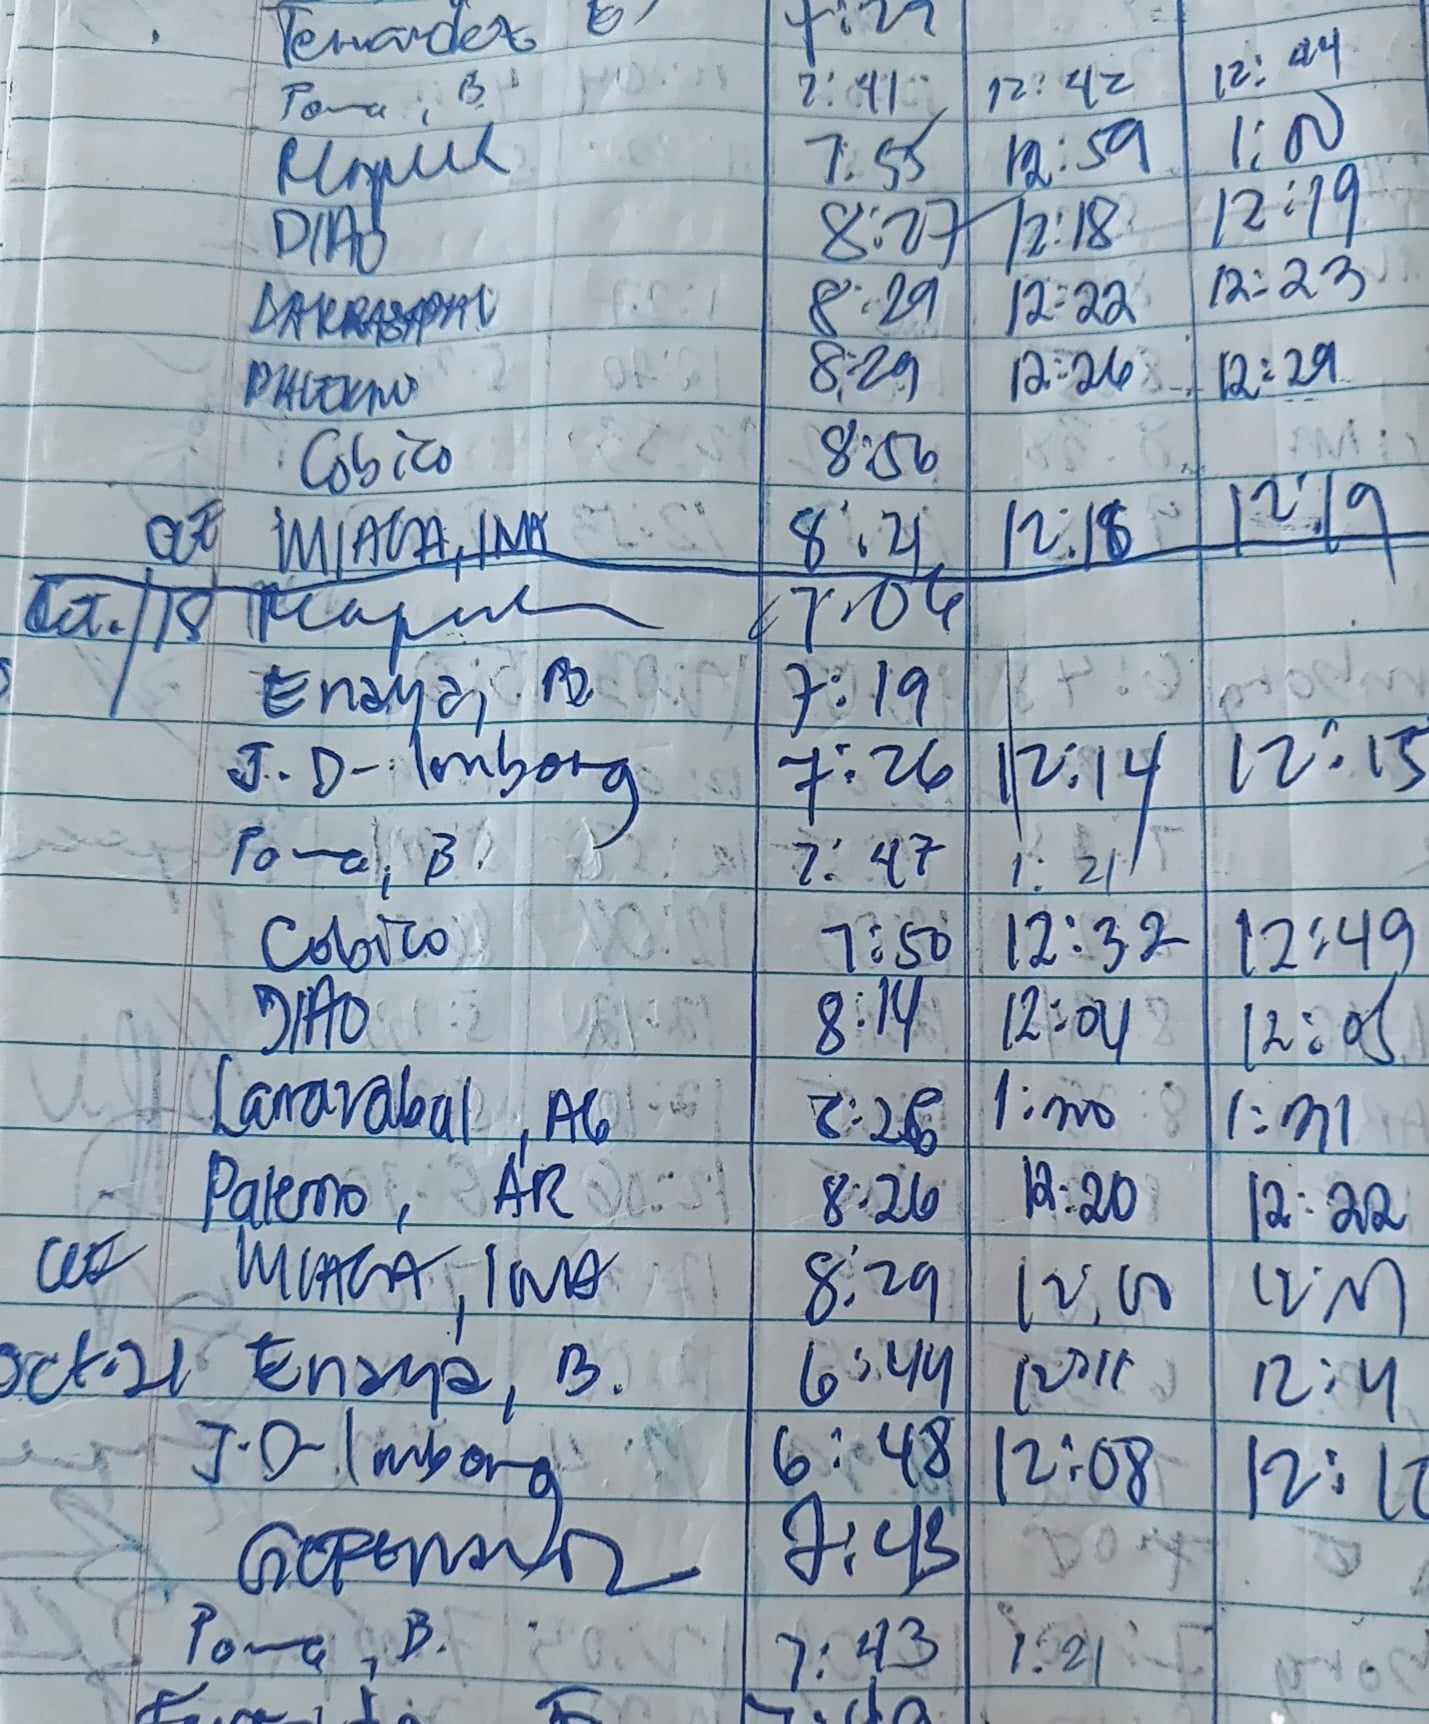 Fernandez E 7:29
Poma, B 7:41 12:42 12:44
7:55 12:59 1:00
DIAO 8:27 12:18 12:19
8:29 12:22 12:23
PALERMO 8:29 12:26 12:29
Cobico 8:56
MIAGA, INA 8:21 12:18 12:19
Oct. 18 7:06
Enaya, B. 7:19
J.D-Imborg 7:26 12:14 12:15
Poma, B. 7:47 1:21
Cobico 7:50 12:32 12:49
DIAO 8:14 12:04 12:05
Larrazabal, AG 8:28 1:30 1:31
Palermo, AR 8:26 12:20 12:22
MIAGA, INA 8:29 12:00 12:01
Oct. 21 Enaya, B. 6:44 12:11 12:4
J.D-Imborg 6:48 12:08 12:12
7:43
Poma, B. 7:43 1:21